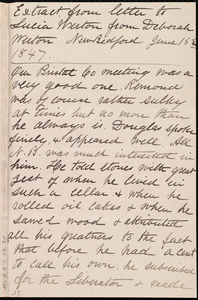 Extract from letter to
Lucia Weston from Deborah
Weston New Bedford June 15th
1847.
Our Bristol Co meeting was a
very good one. Remond
was of course rather sulky
at times but no more than
he always is. Douglas spoke
finely & appeared well. All
N. B. was much interested in
him. He told stories with great
zest of when he lived in
such a cellar & when he
rolled oil casks & when he
sawed wood & attributed
all his greatness to the fact
that before he had a cent
to call his own, he subscribed
for the Liberator & made